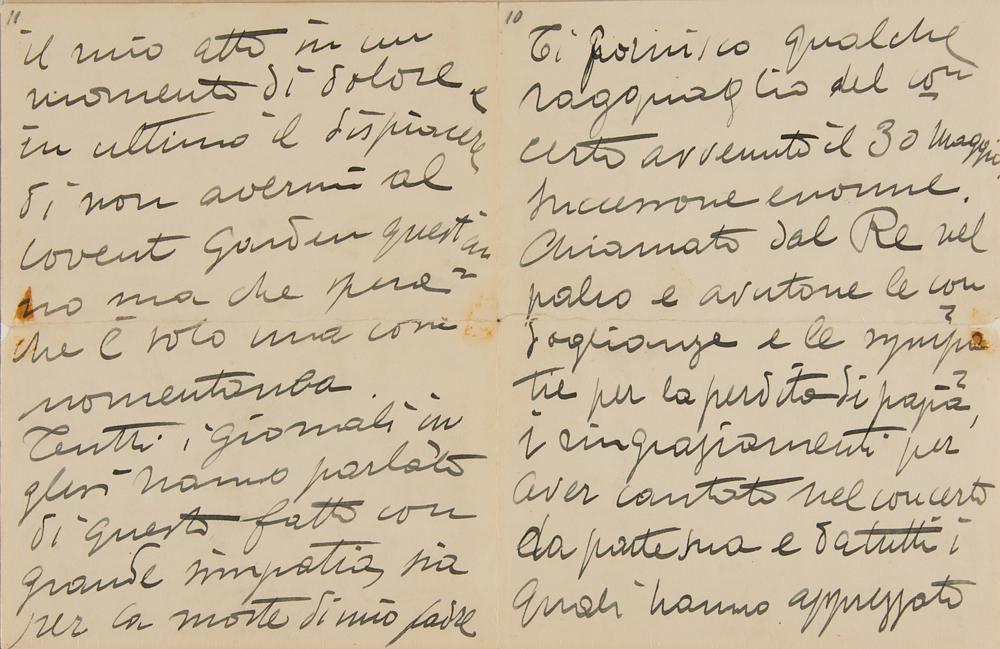 10
Ti fornisco qualche
ragguaglio del con
certo avvenuto il 30 Maggio
Successone enorme.
Chiamato dal Re nel
palco e avutone le con
doglianze e le sympa=
tie per la perdita di papà,
i ringraziamenti per
aver cantato nel concerto
da parte sua e da tutti i
quali hanno apprezzato
11
il mio atto in un
momento di dolore e
in ultimo il dispiacere
di non avermi al
Covent Garden quest'an
no ma che spera=
che è solo una cosa
momentanea
Tutti i giornali in
glesi hanno parlato
di questo fatto con
grande simpatia, sia
per la morte di mio padre